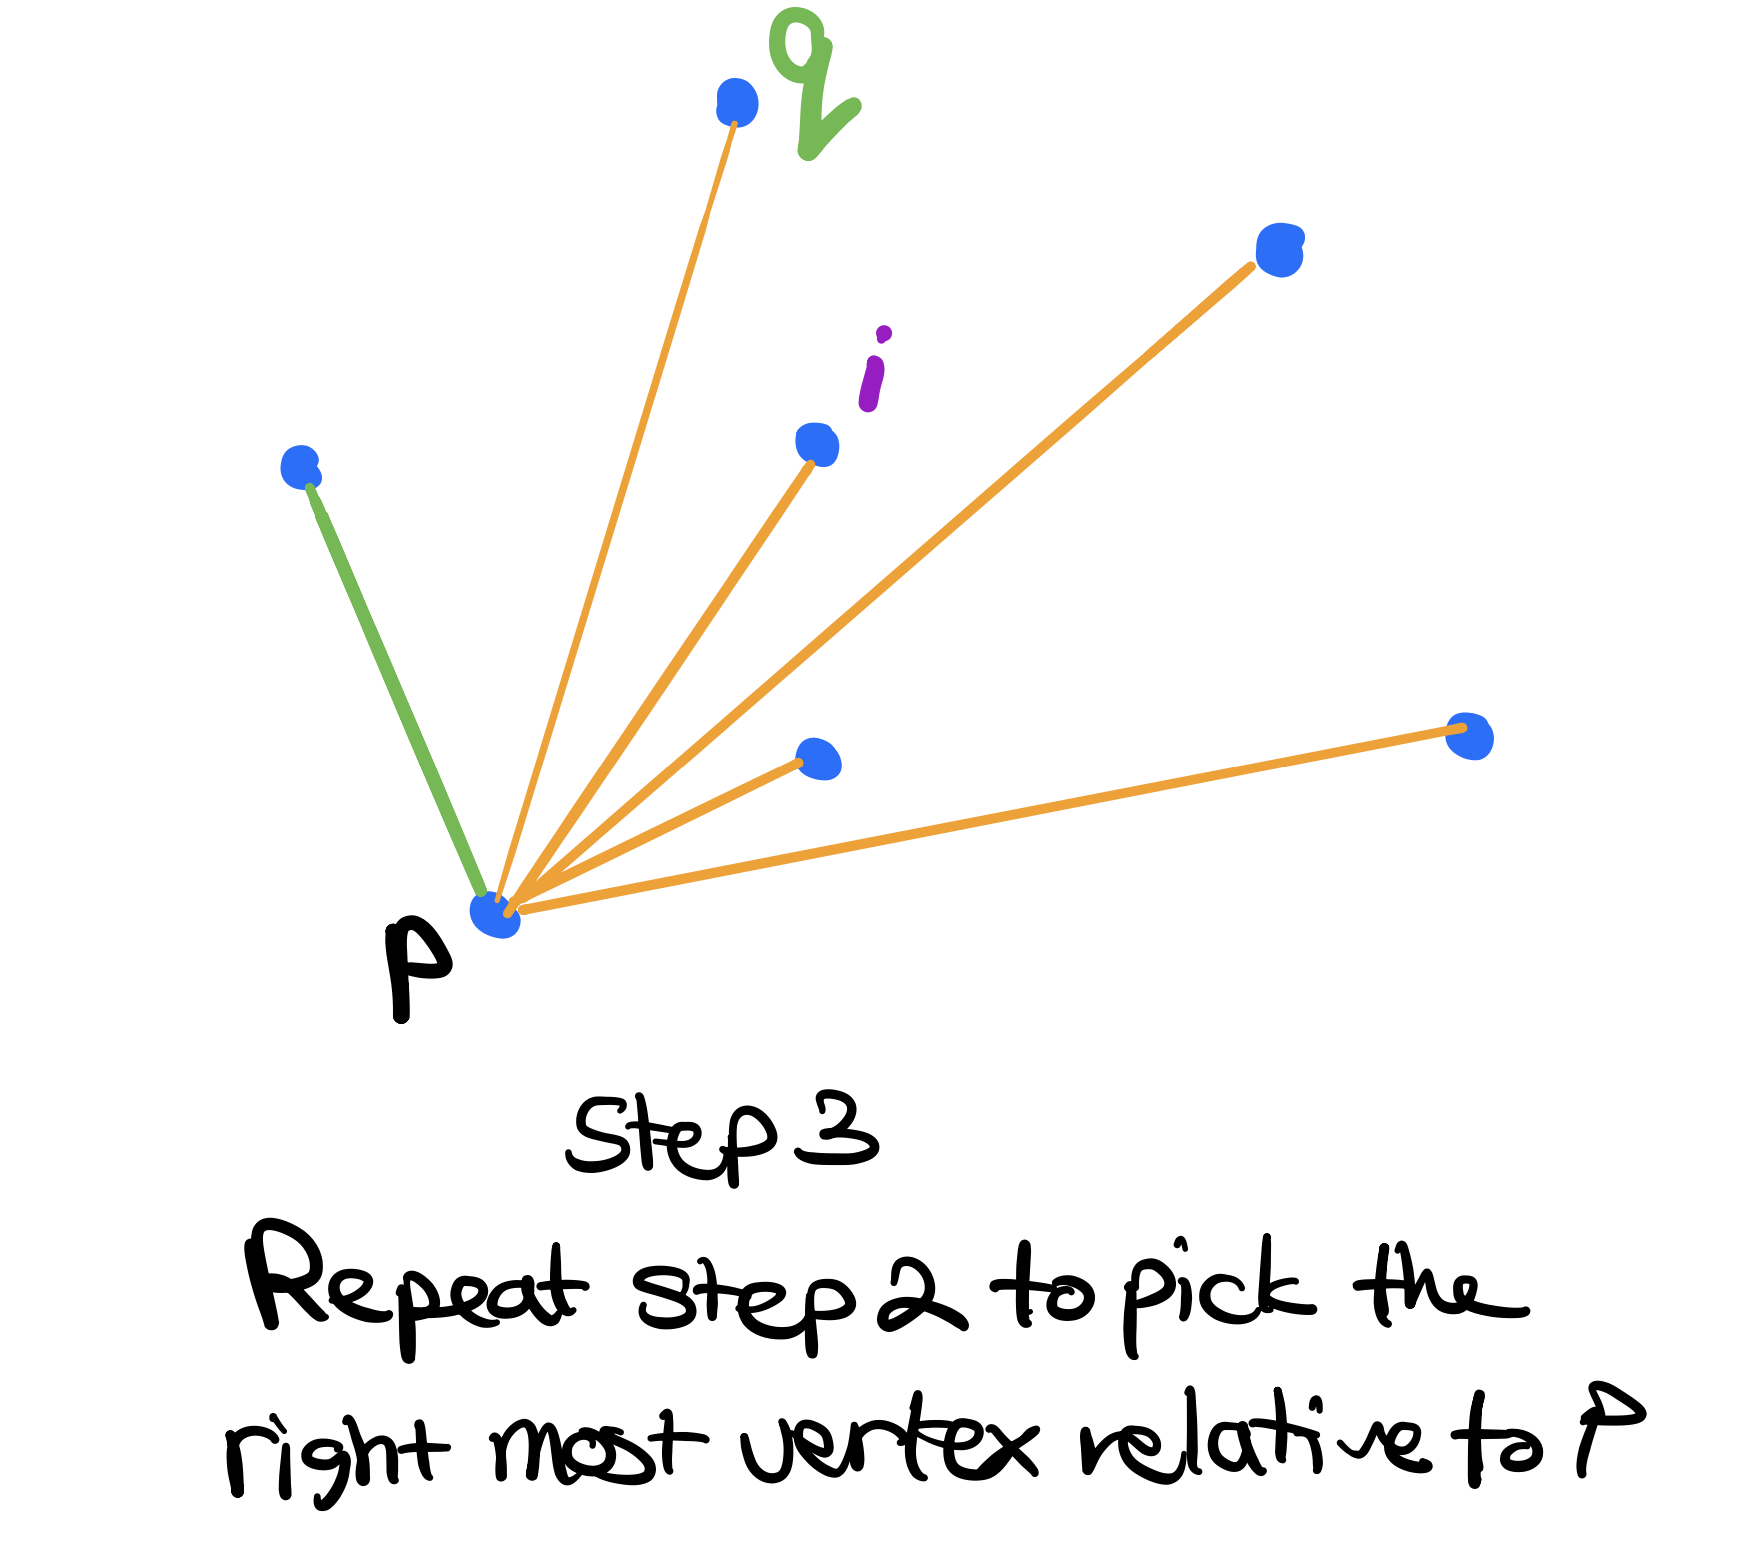 q
i
p
Step 3
Repeat step 2 to pick the
right most vertex relative to P